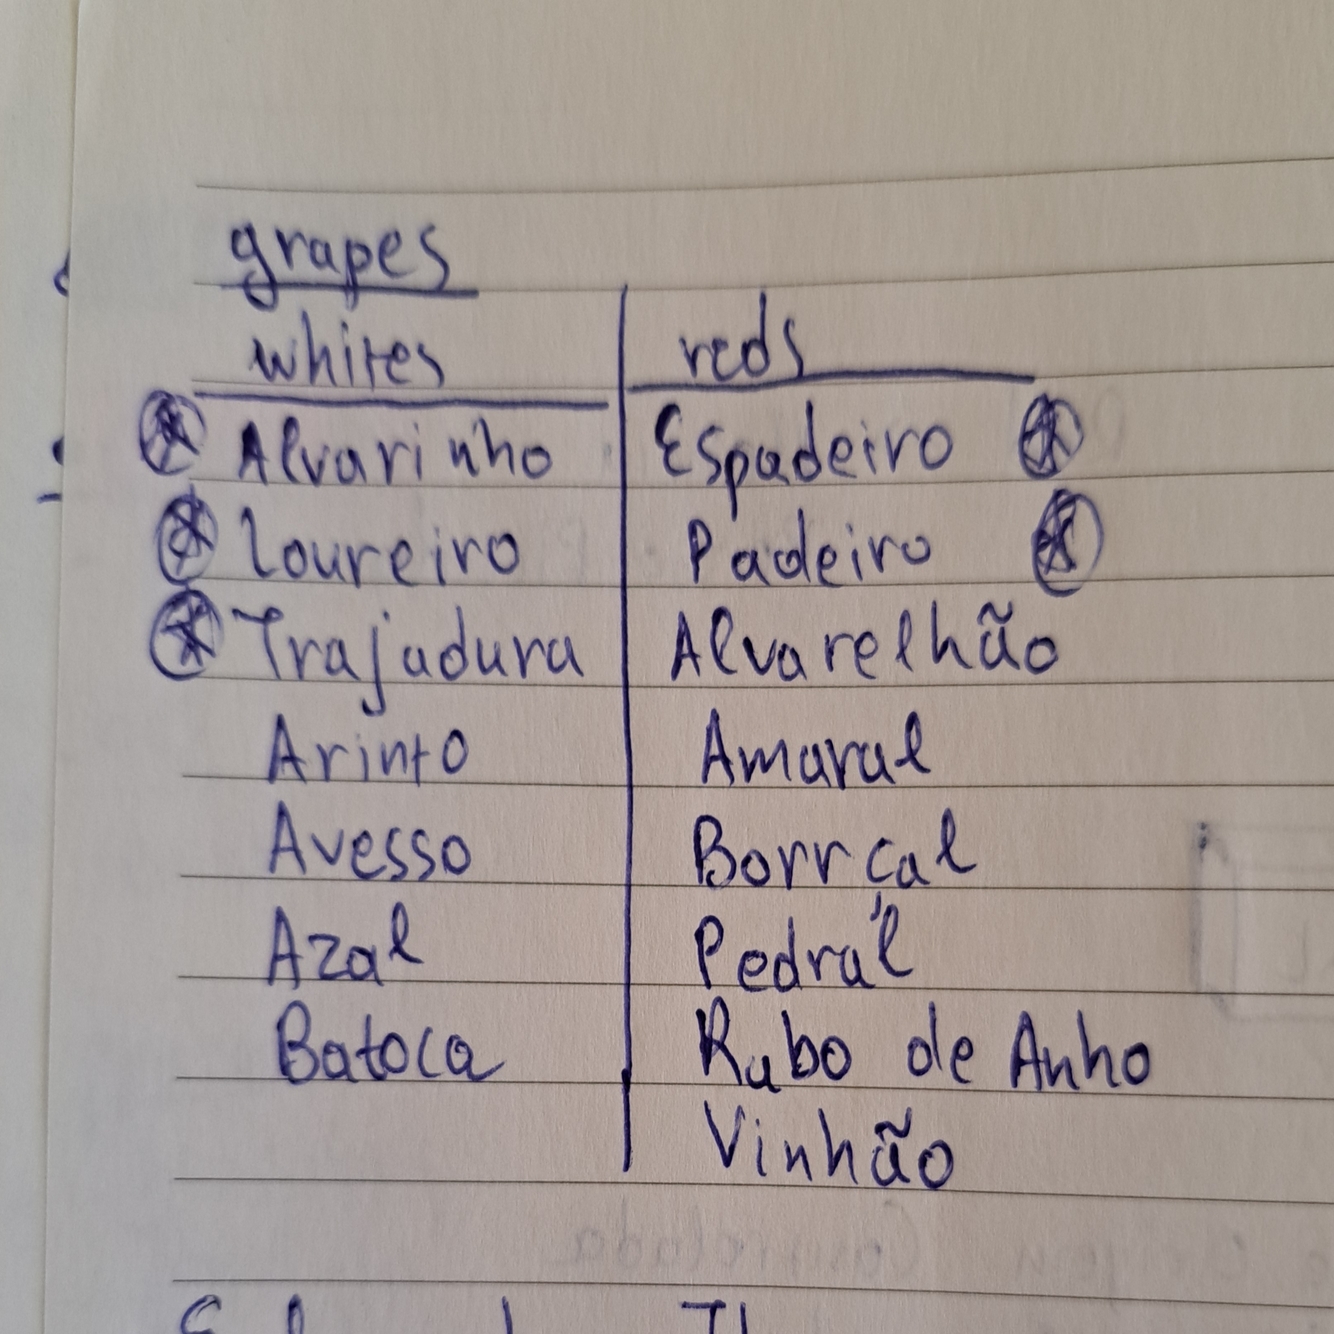 grapes
whites reds
Alvarinho Espadeiro
Loureiro Padeiro
Trajadura Alvarelhão
Arinto Amaral
Avesso Borrçal
Azal Pedral
Batoca Rabo de Anho
Vinhão